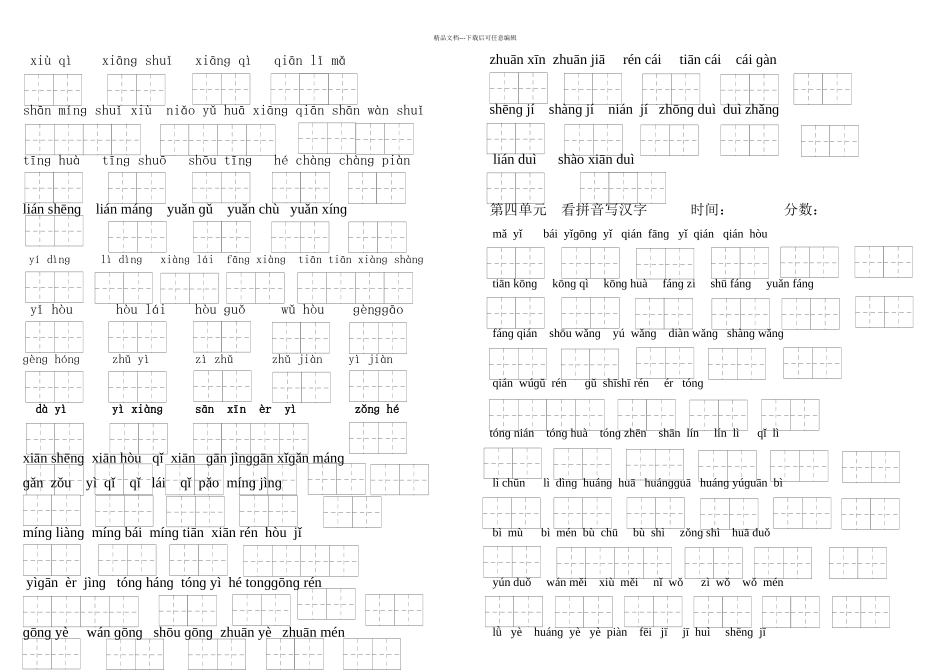 精品文档---下载后可任意编辑
xiù qì xiānɡ shuǐ xiānɡ qì qiān lǐ mǎ
shān mínɡ shuǐ xiù niǎo yǔ huā xiānɡ qiān shān wàn shuǐ
tīnɡ huà tīnɡ shuō shōu tīnɡ hé chànɡ chànɡ piàn
lián shēnɡ lián mánɡ yuǎn ɡǔ yuǎn chù yuǎn xínɡ
yí dìnɡ lì dìnɡ xiànɡ lái fānɡ xiànɡ tiān tiān xiànɡ shànɡ
yǐ hòu hòu lái hòu ɡuǒ wǔ hòu ɡènɡɡāo
ɡènɡ hónɡ zhǔ yì zì zhǔ zhǔ jiàn yì jiàn
dà yì yì xiànɡ sān xīn èr yì zǒnɡ hé
xiān shēnɡ xiān hòu qǐ xiān ɡān jìnɡɡān xǐɡǎn mánɡ
ɡǎn zǒu yì qǐ qǐ lái qǐ pǎo mínɡ jìnɡ
mínɡ liànɡ mínɡ bái mínɡ tiān xiān rén hòu jǐ
yìɡān èr jìnɡ tónɡ hánɡ tónɡ yì hé tonɡɡōnɡ rén
ɡōnɡ yè wán ɡōnɡ shōu ɡōnɡ zhuān yè zhuān mén
zhuān xīn zhuān jiā rén cái tiān cái cái ɡàn
shēnɡ jí shànɡ jí nián jí zhōnɡ duì duì zhǎnɡ
lián duì shào xiān duì
第四单元 看拼音写汉字 时间: 分数:
mǎ yǐ bái yǐɡōnɡ yǐ qián fānɡ yǐ qián qián hòu
tiān kōnɡ kōnɡ qì kōnɡ huà fánɡ zi shū fánɡ yuǎn fānɡ
fánɡ qián shōu wǎnɡ yú wǎnɡ diàn wǎnɡ shànɡ wǎnɡ
qián wúɡǔ rén ɡǔ shīshī rén ér tónɡ
tónɡ nián tónɡ huà tónɡ zhēn shān lín lín lì qǐ lì
lì chūn lì dìnɡ huánɡ huā huánɡɡuā huánɡ yúɡuān bì
bì mù bì mén bù chū bù shì zǒnɡ shì huā duǒ
yún duǒ wán měi xiù měi nǐ wǒ zì wǒ wǒ mén
lǜ yè huánɡ yè yè piàn fēi jī jī huì shēnɡ jī